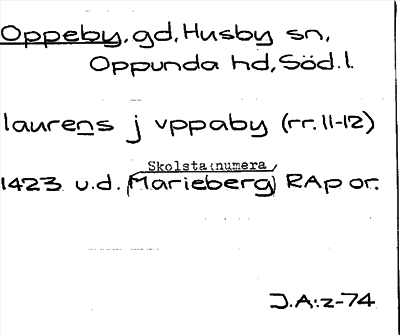 Oppeby, gd, Husby sn,
Oppunda hd, Söd. l.
laurens j vppaby (rr. 11-12)
Skolsta (numera
1423 u.d. Marieberg) RAp or.
J.A:z-74